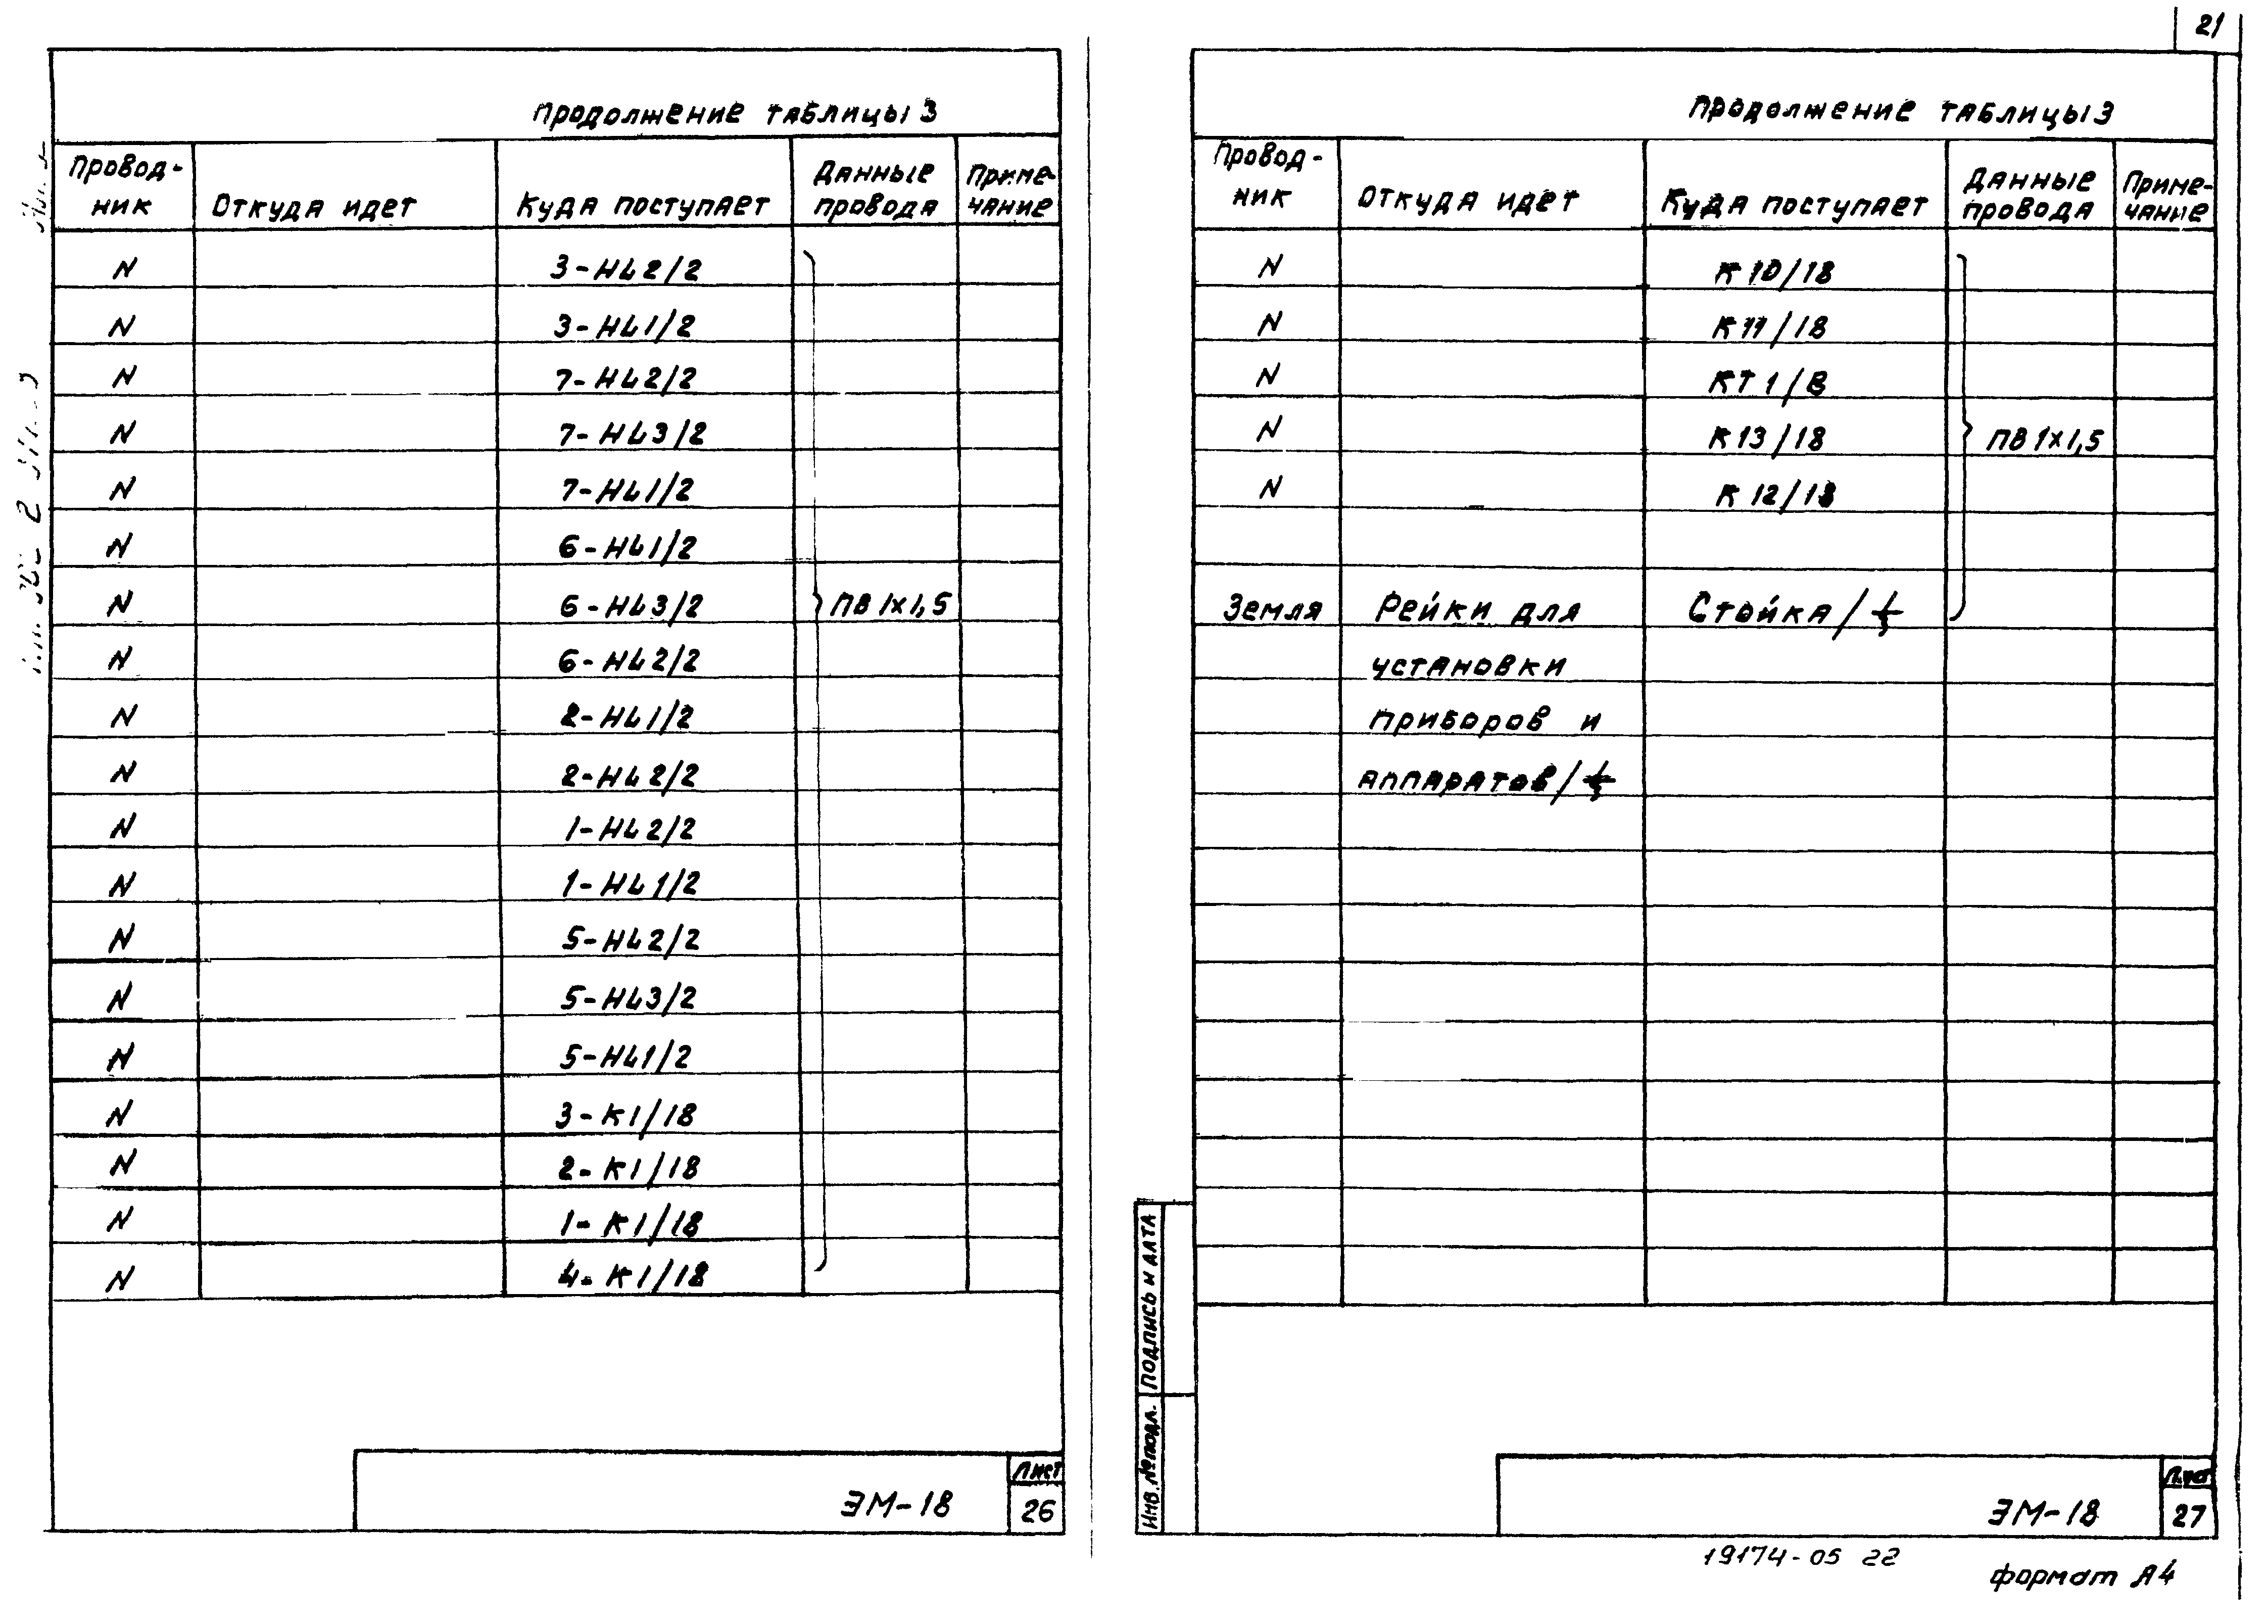 21
Продолжение таблицы 3
Провод-
ник
Откуда идет
Куда поступает
Данные
провода
Приме-
чание
N 3-HL2/2
N 3-HL1/2
N 7-HL2/2
N 7-HL3/2
N 7-HL1/2
N 6-HL1/2
N 6-HL3/2 ПВ 1х1,5
N 6-HL2/2
N 2-HL1/2
N 2-HL2/2
N 1-HL2/2
N 1-HL1/2
N 5-HL2/2
N 5-HL3/2
N 5-HL1/2
N 3-К1/18
N 2-К1/18
N 1-К1/18
N 4-К1/18
ЭМ-18
Лист
26
Продолжение таблицы 3
Провод-
ник
Откуда идет
Куда поступает
Данные
провода
Приме-
чание
N К10/18
N К11/18
N КТ1/В
N К13/18 ПВ 1х1,5
N К12/18
Земля Рейки для Стойка/⏚
установки
приборов и
аппаратов/⏚
Подпись и дата
Инв. № подл.
ЭМ-18
Лист
27
19174-05 22
формат А4